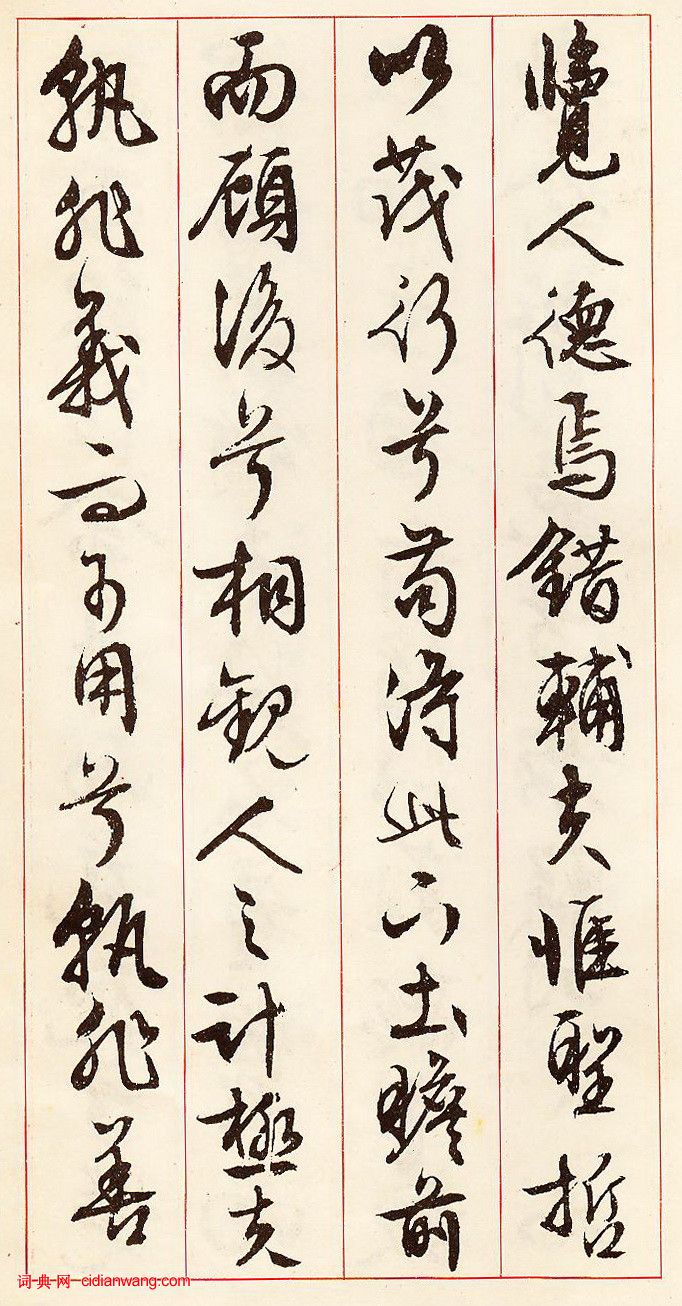 覽人德焉錯輔夫惟聖哲
以茂行兮苟得此下土瞻前
而顧後兮相觀人之計極夫
孰非義而可用兮孰非善
词典网 cidianwang.com